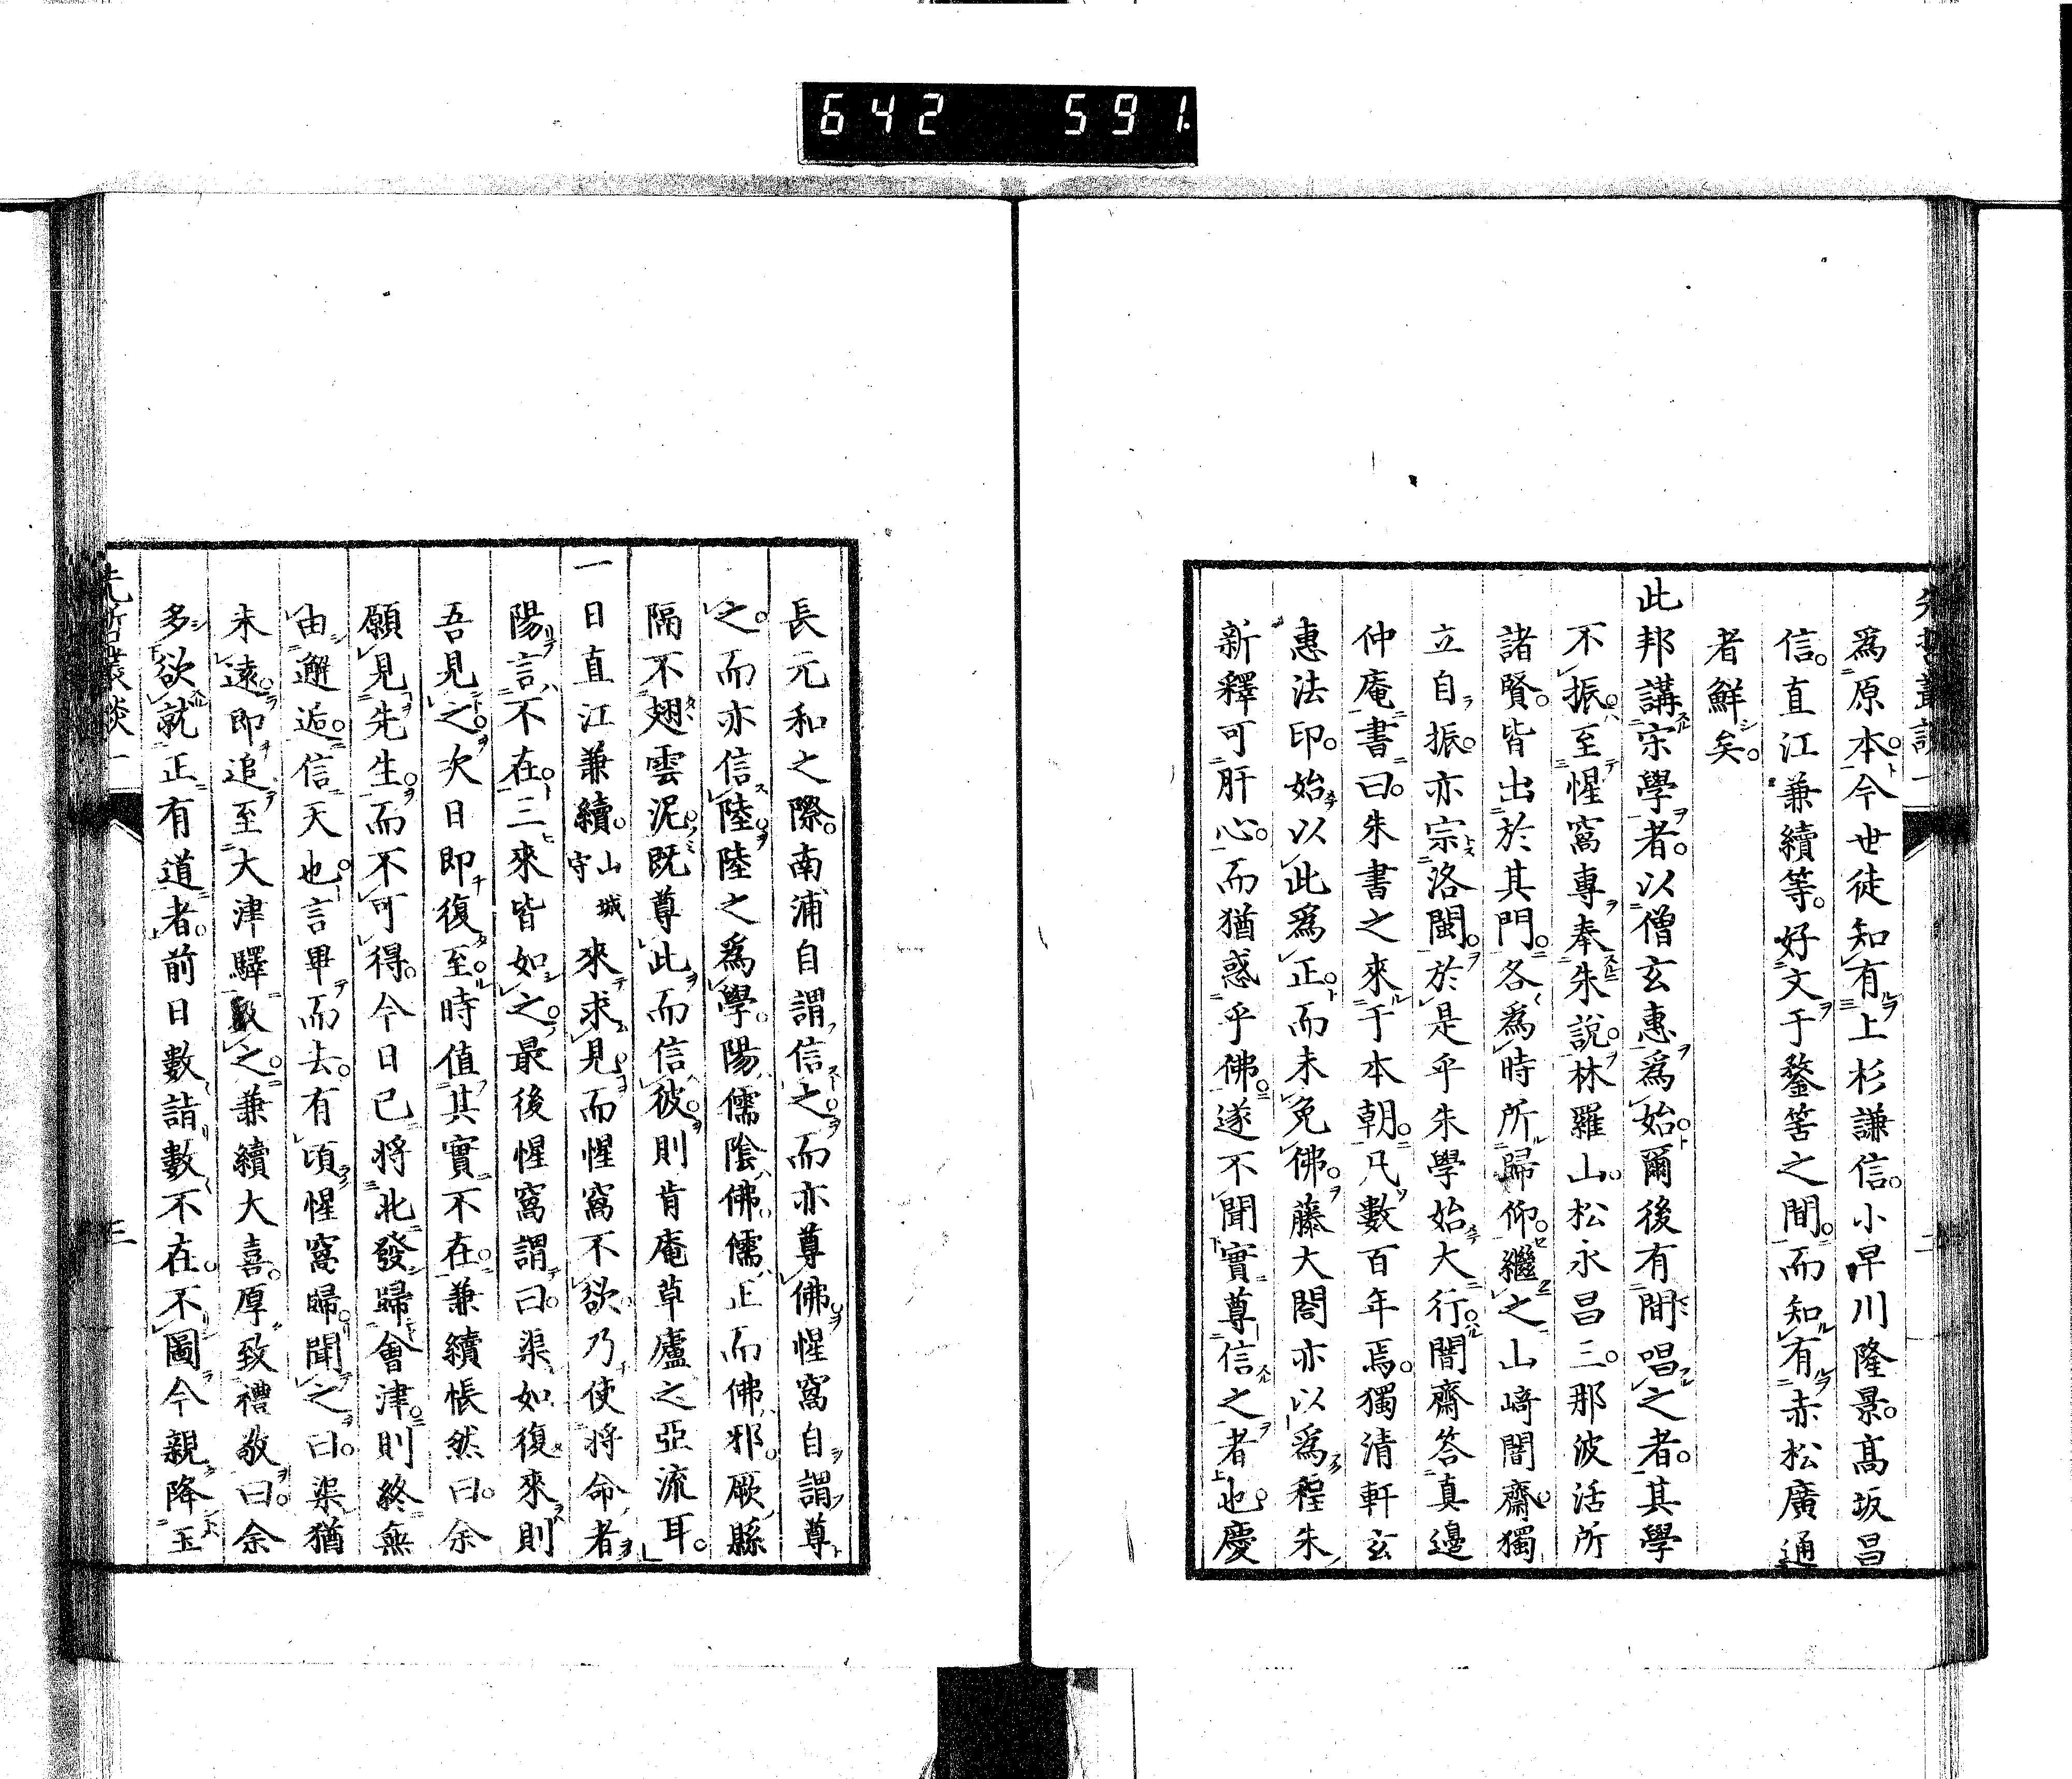 642 591
爲原本今世徒知有上杉謙信小早川隆景髙坂昌
信直江兼續等好文于鍪笘之間而知有赤松廣通
者鮮矣
此邦講宋學者以僧玄惠爲始爾後有間唱之者其學
不振至惺窩專奉朱說林羅山松永昌三那波活所
諸賢皆出於其門各爲時所歸仰繼之山﨑闇齋獨
立自振亦宗洛閩於是乎朱學始大行闇齋答真邊
仲庵書曰朱書之來于本朝凡數百年焉獨清軒玄
惠法印始以此爲正而未免佛藤大閤亦以爲程朱
新釋可肝心而猶惑乎佛遂不聞實尊信之者也慶
長元和之際南浦自謂信之而亦尊佛惺窩自謂尊
之而亦信陸陸之爲學陽儒陰佛儒正而佛邪厥縣
隔不翅雲泥既尊此而信彼則肯庵草廬之亞流耳
一日直江兼續山城守來求見而惺窩不欲乃使將命者
陽言不在三來皆如之最後惺窩謂曰渠如復來則
吾見之次日即復至時值其實不在兼續悵然曰余
願見先生而不可得今日已將北發歸會津則終無
由邂逅信天也言畢而去有頃惺窩歸聞之曰渠猶
未遠即追至大津驛及之兼續大喜厚致禮敬曰余
多欲就正有道者前日數詣數不在不圖今親降玉